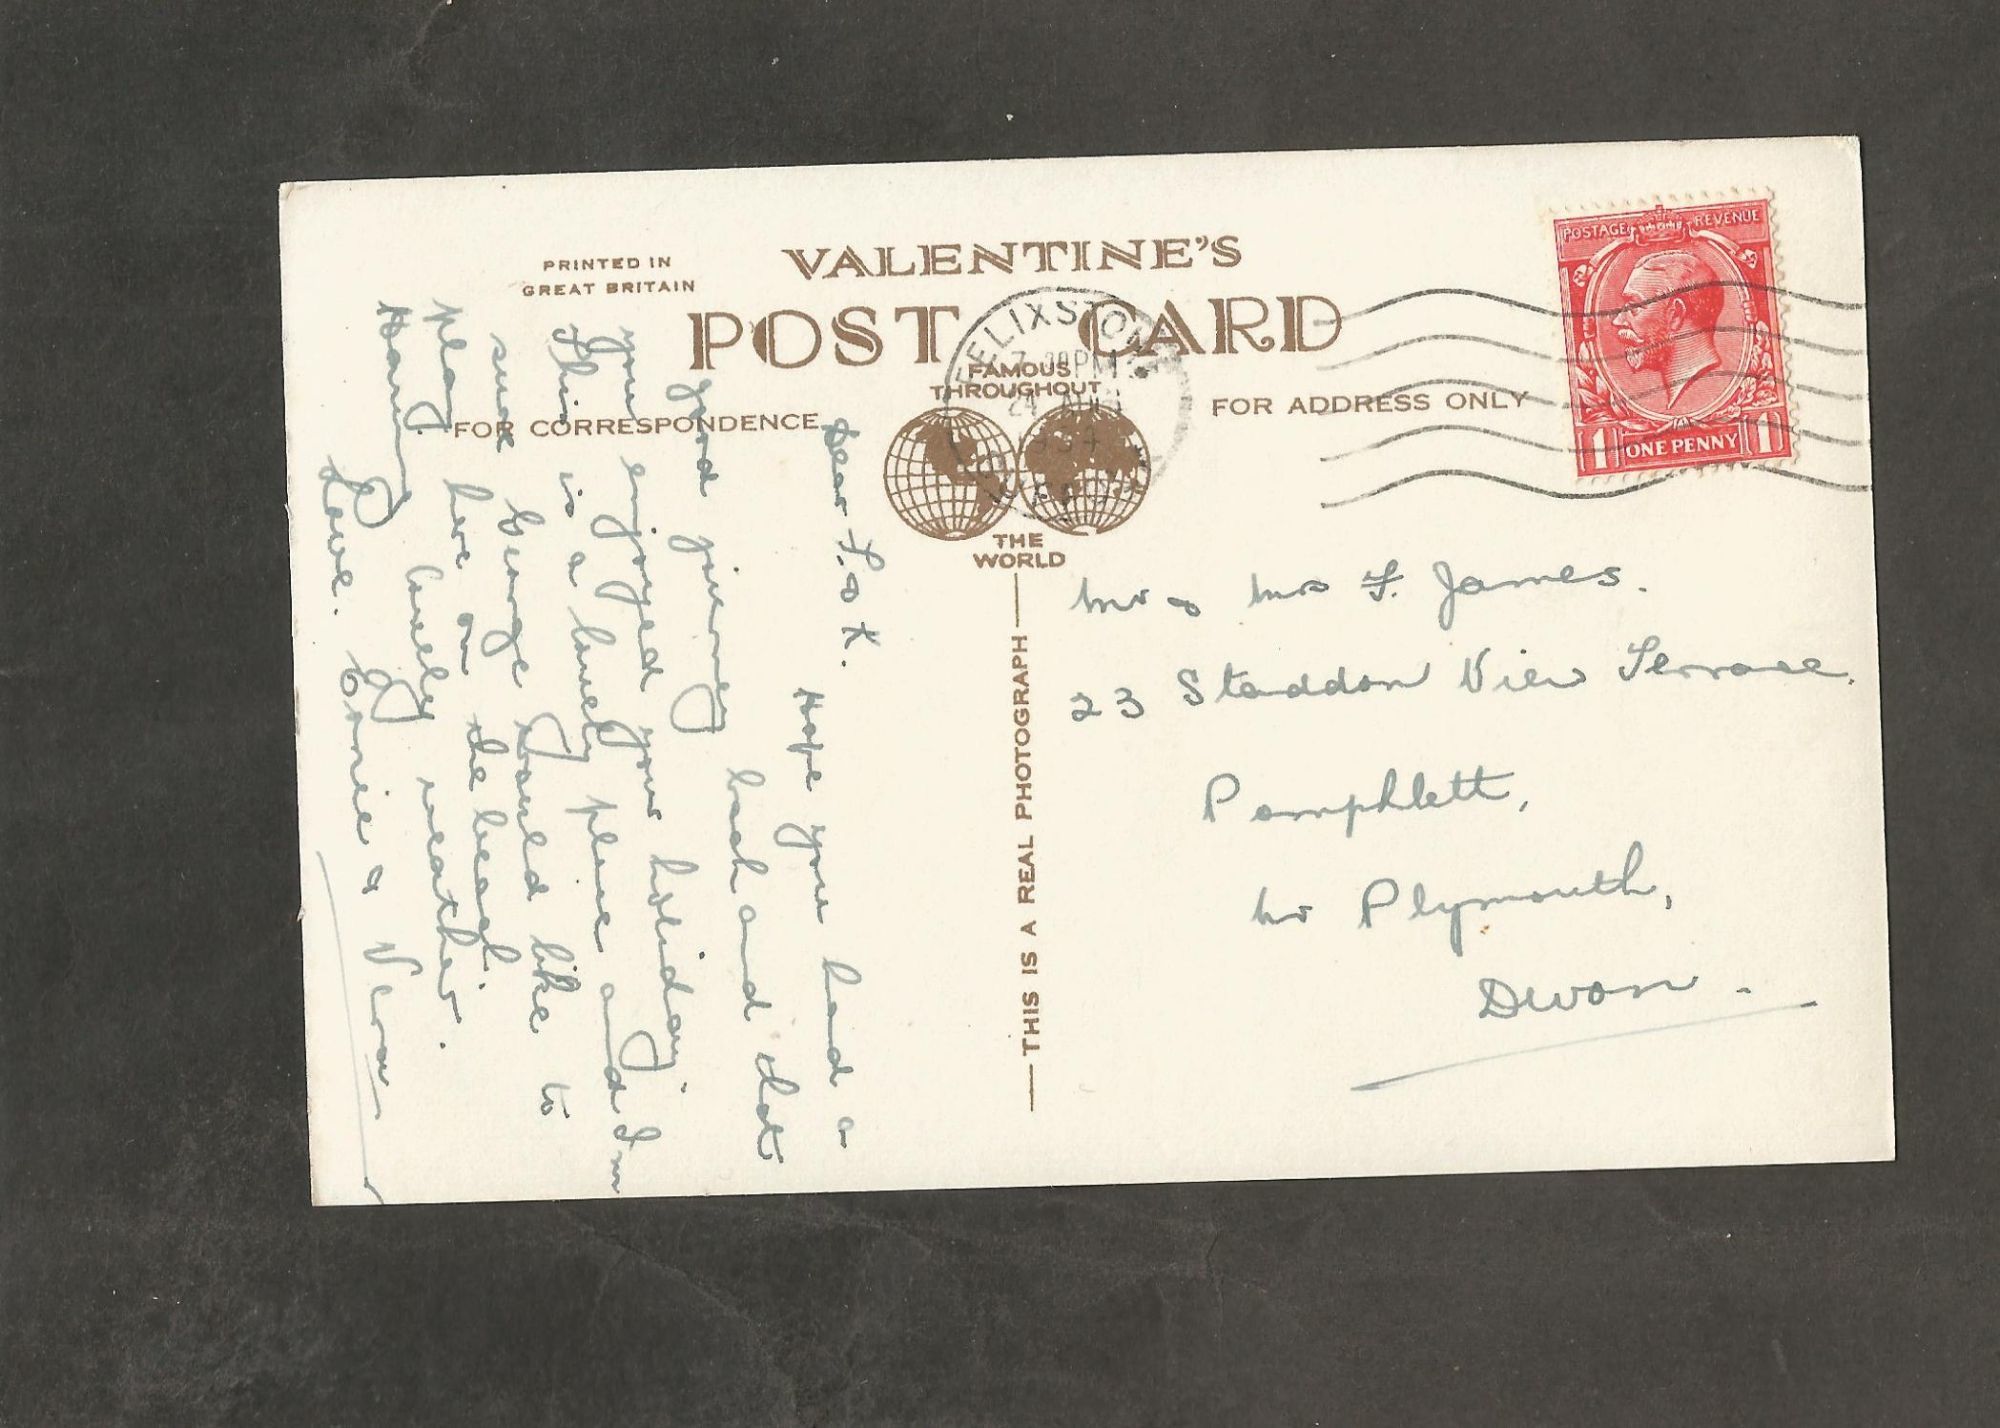 PRINTED IN
GREAT BRITAIN
VALENTINE'S
POST CARD
FAMOUS
THROUGHOUT
THE
WORLD
FOR CORRESPONDENCE
FOR ADDRESS ONLY
THIS IS A REAL PHOTOGRAPH
FELIXSTOWE
7.30PM
24
POSTAGE REVENUE
1 ONE PENNY 1
Dear F. & K. Hope you had a
good journey back and that
you enjoyed your holiday.
This is a lovely place and I'm
sure George would like to
play here on the beach.
Having lovely weather.
Love. Connie & Vera
Mr & Mrs F. James.
23 Staddon View Terrace.
Pomphlett,
Nr Plymouth,
Devon.